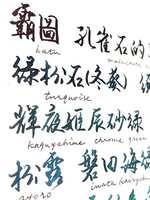 霸圖 孔雀石的
hatu
綠松石(冬
turquoise
輝夜姬辰砂綠
kaguyahime chrome green
松露 磐田海
iwata